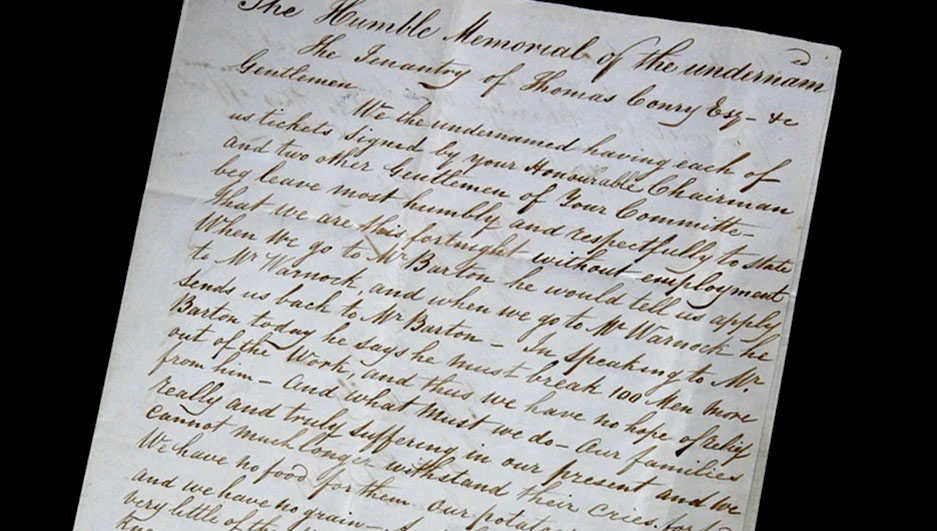 The Humble Memorial of the undernam̄d
The Tenantry of Thomas Conry Esq – &c
Gentlemen
We the undernamed having each of
us tickets signed by your Honourable Chairman
and two other Gentlemen of Your Committe–
beg leave most humbly and respectfully to state
that we are this fortnight without employment
When we go to Mr Barton he would tell us apply
to Mr Warnock and when we go to Mr Warnock he
sends us back to Mr Barton – In speaking to Mr
Barton today he says he must break 100 Men more
out of the Work, and thus we have no hope of relief
from him – And what must we do – Our families
really and truly suffering in our present and we
cannot much longer withstand their cries for
We have no food for them our potatoes
and we have no grain –
very little of the